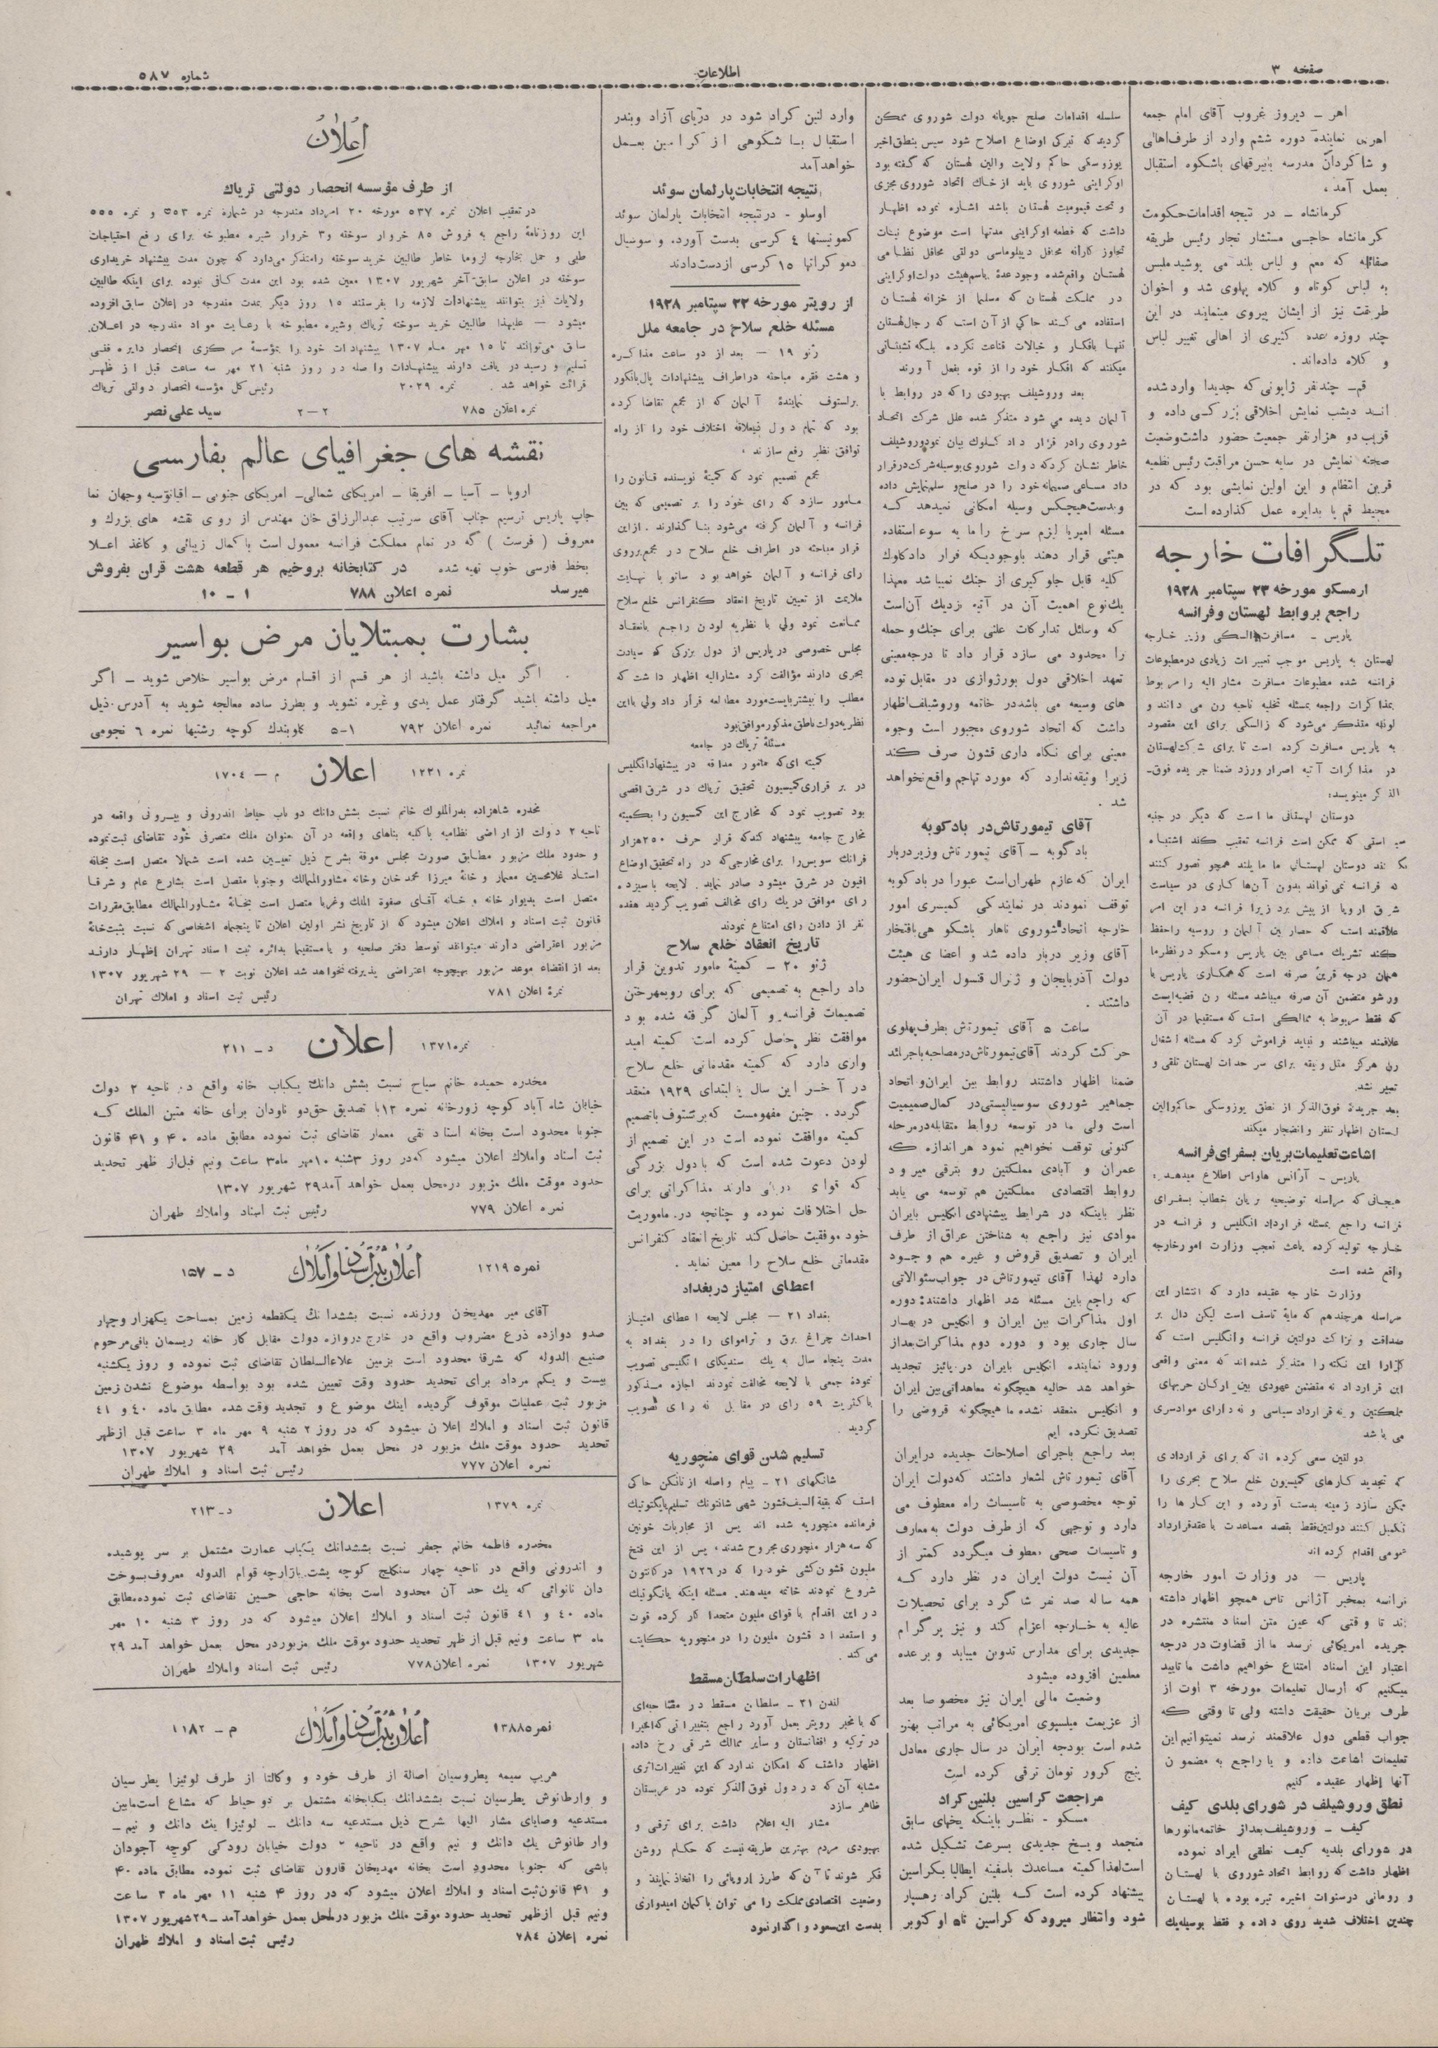 صفحه ۳
اطلاعات
شماره ۵۸۷
اهر ـ دیروز غروب آقای امام جمعه
نماینده دوره ششم وارد از طرف اهالی
و شاگردان مدرسه با بیرقهای باشکوه استقبال
بعمل آمد،
کرمانشاه ـ در نتیجه اقدامات حکومت
کرمانشاه حاجی مستشار نجار رئیس طریقه
که معم و لباس بلند می پوشید ملبس
به لباس کوتاه و کلاه پهلوی شد و اخوان
طریقت نیز از ایشان پیروی مینمایند در این
چند روزه عده کثیری از اهالی تغییر لباس
و کلاه داده‌اند.
قم ـ چند نفر ژاپونی که جدیدا وارد شده
اند دیشب نمایش اخلاقی بزرگی داده و
قریب دو هزار نفر جمعیت حضور داشت وضعیت
صحنه نمایش در سایه حسن مراقبت رئیس نظمیه
قرین انتظام و این اولین نمایشی بود که در
محیط قم پا بدایره عمل گذارده است
تلگرافات خارجه
از مسکو مورخه ۲۳ سپتامبر ۱۹۲۸
راجع بروابط لهستان و فرانسه
پاریس ـ مسافرت زالسکی وزیر خارجه
لهستان به پاریس موجب تعبیرات زیادی در مطبوعات
فرانسه شده مطبوعات مسافرت مشارالیه را مربوط
بمذاکرات راجعه بمسئله تخلیه ناحیه رن می دانند و
متذکر می‌شود که زالسکی برای این مقصود
به پاریس مسافرت کرده است تا برای شرکت لهستان
در مذاکرات آتیه اصرار ورزد ضمنا جریده فوق‌ـ
الذکر مینویسد:
دوستان لهستانی ما است که دیگر در جنبه
سیاستی که ممکن است فرانسه تعقیب کند اشتباه
نکنند دوستان لهستانی ما مایلند همچو تصور کنند
که فرانسه نمی تواند بدون آن‌ها کاری در سیاست
شرق اروپا از پیش برد زیرا فرانسه در این امر
علاقمند است که حصار بین آلمان و روسیه را حفظ
کند تشریک مساعی بین پاریس و مسکو در نظر ما
همان درجه قرین صرفه است که همکاری پاریس با
ورشو متضمن آن صرفه میباشد مسئله رن قضیه‌ایست
که فقط مربوط به ممالکی است که مستقیما در آن
علاقمند میباشند و نباید فراموش کرد که مسئله اشغال
رن هرگز مثل وثیقه برای سرحدات لهستان تلقی و
تعبیر نشد.
بعد جریده فوق‌الذکر از نطق یوزوسکی حاکم والین
لهستان اظهار تنفر و انضجار میکند
اشاعت تعلیمات بریان بسفرای فرانسه
پاریس ـ آژانس هاواس اطلاع میدهد،
هیجانی که مراسله توضیحیه بریان خطاب بسفرای
فرانسه راجع بمسئله قرارداد انگلیس و فرانسه در
خارجه تولید کرده باعث تعجب وزارت امور خارجه
واقع شده است
وزارت خارجه عقیده دارد که انتشار این
مراسله هر چند هم که مایه تاسف است لیکن دال بر
صداقت و نزاکت دولتین فرانسه و انگلیس است که
کرارا این نکته را متذکر شده‌اند که معنی واقعی
این قرارداد نه متضمن عهودی بین ارکان حربهای
مملکتین و نه قرارداد سیاسی و نه دارای مواد سری
می باشد
دولتین سعی کرده اند که برای قراردادی
که تجدید کارهای کمیسیون خلع سلاح بحری را
ممکن سازد زمینه بدست آورده و این کارها را
تکمیل کنند دولتین فقط بقصد مساعدت با عقد قرارداد
عمومی اقدام کرده اند
پاریس ـ در وزارت امور خارجه
فرانسه بمخبر آژانس تاس همچو اظهار داشته
اند تا وقتی که عین متن اسناد منتشره در
جریده امریکائی نرسد ما از قضاوت در درجه
اعتبار این اسناد امتناع خواهیم داشت ما تایید
میکنیم که ارسال تعلیمات مورخه ۳ اوت از
طرف بریان حقیقت داشته ولی تا وقتی که
جواب قطعی دول علاقمند نرسد نمیتوانیم این
تعلیمات اشاعت داده و یا راجع به مضمون
آنها اظهار عقیده کنیم
نطق وروشیلف در شورای بلدی کیف
کیف ـ وروشیلف بعد از خاتمه مانورها
در شورای بلدیه کیف نطقی ایراد نموده
اظهار داشت که روابط اتحاد شوروی با لهستان
و رومانی در سنوات اخیره تیره بوده با لهستان
چندین اختلاف شدید روی داده و فقط بوسیله یک
سلسله اقدامات صلح جویانه دولت شوروی ممکن
گردید که تیرگی اوضاع اصلاح شود سپس بنطق اخیر
یوزوسکی حاکم ولایت والین لهستان که گفته بود
اوکراینی شوروی باید از خاک اتحاد شوروی مجزی
و تحت قیمومیت لهستان باشد اشاره نموده اظهار
داشت که قطعه اوکراینی مدتها است موضوع نیات
تجاوز کارانه محافل دیپلوماسی دولتی محافل نظامی
لهستان واقع شده وجود عده باسم هیئت دولت اوکراینی
در مملکت لهستان که مسلما از خزانه لهستان
استفاده می کنند حاکی از آن است که رجال لهستان
تنها بافکار و خیالات قناعت نکرده بلکه تشبثاتی
میکنند که افکار خود را از قوه بفعل آورند
بعد وروشیلف بهبودی را که در روابط با
آلمان دیده می شود متذکر شده علل شرکت اتحاد
شوروی را در قرارداد کلوک بیان نمود وروشیلف
خاطر نشان کرد که دولت شوروی بوسیله شرکت در قرار
داد مساعی صمیمانه خود را در صلح و سلم نمایش داده
و بدست هیچکس وسیله امکانی نمیدهد که
مسئله امپریالیزم سرخ را ما به سوء استفاده
هیئتی قرار دهند باوجودیکه قرارداد کلوک
کلیه قابل جلوگیری از جنک نمیباشد معهذا
یک نوع اهمیت آن در آتیه نزدیک آن است
که وسائل تدارکات علنی برای جنک و حمله
را محدود می سازد قرارداد تا درجه معینی
تعهد اخلاقی دول بورژوازی در مقابل توده
های وسیعه می باشد در خاتمه وروشیلف اظهار
داشت که اتحاد شوروی مجبور است وجوه
معینی برای نگاه داری قشون صرف کند
زیرا وثیقه ندارد که مورد تهاجم واقع نخواهد
شد.
آقای تیمورتاش در بادکوبه
بادکوبه ـ آقای تیمورتاش وزیر دربار
ایران که عازم طهران است عبورا در بادکوبه
توقف نمودند در نمایندگی کمیسری امور
خارجه اتحاد شوروی ناهار باشکوهی بافتخار
آقای وزیر دربار داده شد و اعضای هیئت
دولت آذربایجان و ژنرال قنسول ایران حضور
داشتند.
ساعت ۵ آقای تیمورتاش بطرف پهلوی
حرکت کردند آقای تیمورتاش در مصاحبه با جراید
ضمنا اظهار داشتند روابط بین ایران و اتحاد
جماهیر شوروی سوسیالیستی در کمال صمیمیت
است ولی ما در توسعه روابط متقابله در مرحله
کنونی توقف نخواهیم نمود هر اندازه که
عمران و آبادی مملکتین رو بترقی میرود
روابط اقتصادی مملکتین هم توسعه می یابد
نظر باینکه در شرایط پیشنهادی انگلیس بایران
موادی نیز راجع به شناختن عراق از طرف
ایران و تصدیق قروض و غیره هم وجود
دارد لهذا آقای تیمورتاش در جواب سئوالاتی
که راجع باین مسئله شد اظهار داشتند: دوره
اول مذاکرات بین ایران و انگلیس در بهار
سال جاری بود و دوره دوم مذاکرات بعد از
ورود نماینده انگلیس بایران در پائیز تجدید
خواهد شد حالیه هیچگونه معاهداتی بین ایران
و انگلیس منعقد نشده ما هیچگونه قروضی را
تصدیق نکرده ایم
بعد راجع باجرای اصلاحات جدیده در ایران
آقای تیمورتاش اشعار داشتند که دولت ایران
توجه مخصوصی به تاسیسات راه معطوف می
دارد و توجهی که از طرف دولت به معارف
و تاسیسات صحی معطوف میگردد کمتر از
آن نیست دولت ایران در نظر دارد که
همه ساله صد نفر شاگرد برای تحصیلات
عالیه به خارجه اعزام کند و نیز پرگرام
جدیدی برای مدارس تدوین میابد و بر عده
معلمین افزوده میشود
وضعیت مالی ایران نیز مخصوصا بعد
از عزیمت میلسپوی امریکائی به مراتب بهتر
شده است بودجه ایران در سال جاری معادل
پنج کرور تومان ترقی کرده است
مراجعت کراسین بلنین گراد
مسکو ـ نظر باینکه یخهای سابق
منجمد و یخ جدیدی بسرعت تشکیل شده
است لهذا کمیته مساعدت باسفینه ایطالیا بکراسین
پیشنهاد کرده است که بلنین گراد رهسپار
شود و انتظار میرود که کراسین تا ۵ اوکتوبر
وارد لنین گراد شود در دریای آزاد و بندر
استقبال باشکوهی از کراسین بعمل
خواهد آمد
نتیجه انتخابات پارلمان سوئد
اوسلو ـ در نتیجه انتخابات پارلمان سوئد
کمونیستها ٤ کرسی بدست آورده و سوسیال
دموکراتها ۱۵ کرسی از دست دادند
از رویتر مورخه ۲۲ سپتامبر ۱۹۲۸
مسئله خلع سلاح در جامعه ملل
ژنو ۱۹ ـ بعد از دو ساعت مذاکره
و هشت فقره مباحثه در اطراف پیشنهادات پال بانکور
برلستوف نماینده آلمان که از مجمع تقاضا کرده
بود که تمام دول ذیعلاقه اختلاف خود را از راه
توافق نظر رفع سازند،
مجمع تصمیم نمود که کمیته نویسنده قانون را
مامور سازد که رای خود را بر تصمیمی که بین
فرانسه و آلمان گرفته می‌شود بنا گذارند. از این
قرار مباحثه در اطراف خلع سلاح در مجمع بروی
رای فرانسه و آلمان خواهد بود ساتو با نهایت
ملایمت از تعیین تاریخ انعقاد کنفرانس خلع سلاح
ممانعت نمود ولی با نظریه لودن راجع بانعقاد
مجلس خصوصی در پاریس از دول بزرگی که سیادت
بحری دارند موافقت کرد مشارالیه اظهار داشت که
مطلب را بیشتر بایست مورد مطالعه قرار داد ولی با این
نظریه دولت ناطق مذکور موافق بود
مسئله تریاک در جامعه
کمیته ای که مامور مداقه در پیشنهاد انگلیس
در برقراری کمیسیون تحقیق تریاک در شرق اقصی
بود تصویب نمود که مخارج این کمیسیون را بکمیته
مخارج جامعه پیشنهاد کند که قرار صرف ۲۵۰ هزار
فرانک سویس را برای مخارجی که در راه تحقیق اوضاع
افیون در شرق میشود صادر نماید. لایحه با سیزده
رای موافق در یک رای مخالف تصویب گردید هفده
نفر از دادن رای امتناع نمودند
تاریخ انعقاد خلع سلاح
ژنو ۲۰ ـ کمیته مامور تدوین قرار
داد راجع به تصمیمی که برای رویهم رختن
تصمیمات فرانسه و آلمان گرفته شده بود
موافقت نظر حاصل کرده است کمیته امید
واری دارد که کمیته مقدماتی خلع سلاح
در آخر این سال یا ابتدای ۱۹۲۹ منعقد
گردد. چنین مفهومست که برنستوف با تصمیم
کمیته موافقت نموده است در این تصمیم از
لودن دعوت شده است که با دول بزرگی
که قوای دریائی دارند مذاکراتی برای
حل اختلافات نموده و چنانچه در ماموریت
خود موفقیت حاصل کند تاریخ انعقاد کنفرانس
مقدماتی خلع سلاح را معین نماید.
اعطای امتیاز در بغداد
بغداد ۲۱ ـ مجلس لایحه اعطای امتیاز
احداث چراغ برق و تراموای را در بغداد به
مدت پنجاه سال به یک سندیکای انگلیسی تصویب
نموده جمعی با لایحه مخالفت نمودند اجازه مذکور
با کثریت ۵۹ رای در مقابل نه رای تصویب
گردید
تسلیم شدن قوای منچوریه
شانگهای ۲۱ ـ پیام واصله از نانکن حاکی
است که بقیة السیف قشون شهی شانتونک تسلیم یانکتوتیک
فرمانده منچوریه شده اند پس از محاربات خونین
که سه هزار منچوری مجروح شدند، پس از این فتح
ملیون قشون کشی خود را که در ۱۹۲۶ در کانتون
شروع نمودند خاتمه میدهند. مسئله اینکه یانگوتیک
در این اقدام با قوای ملیون متحدا کار کرده قوت
و استعداد قشون ملیون را در منچوریه حکایت
می کند.
اظهارات سلطان مسقط
لندن ۲۱ ـ سلطان مسقط در مصاحبه‌ای
که با مخبر رویتر بعمل آورد راجع بتغییراتی که اخیرا
در ترکیه و افغانستان و سایر ممالک شرقی رخ داده
اظهار داشت که امکان ندارد که این تغییرات اثری
مشابه آن که در دول فوق‌الذکر نموده در عربستان
ظاهر سازد
مشارالیه اعلام داشت برای ترقی و
بهبودی مردم بهترین طریقه نیست که حکام روشن
فکر شوند تا آن که طرز اروپائی را اتخاذ نمایند و
وضعیت اقتصادی مملکت را می توان با کمال امیدواری
بدست ابن سعود واگذار نمود
اعلان
از طرف مؤسسه انحصار دولتی تریاک
در تعقیب اعلان نمره ۵۳۷ مورخه ۲۰ امرداد مندرجه در شماره نمره ۵۵۳ و نمره ۵۵۵
این روزنامه راجع به فروش ۸۵ خروار سوخته و ۳ خروار شیره مطبوخه برای رفع احتیاجات
طبی و حمل بخارجه لزوما خاطر طالبین خرید سوخته را متذکر می‌دارد که چون مدت پیشنهاد خریداری
سوخته در اعلان سابق آخر شهریور ۱۳۰۷ معین شده بود این مدت کافی نبوده برای اینکه طالبین
ولایات نیز بتوانند پیشنهادات لازمه را بفرستند ۱۵ روز دیگر بمدت مندرجه در اعلان سابق افزوده
میشود ـ علیهذا طالبین خرید سوخته تریاک و شیره مطبوخه با رعایت مواد مندرجه در اعلان
سابق می‌توانند تا ۱۵ مهر ماه ۱۳۰۷ پیشنهادات خود را بمؤسسه مرکزی انحصار دایره فنی
تسلیم و رسید دریافت دارند پیشنهادات واصله در روز شنبه ۲۱ مهر سه ساعت قبل از ظهر
قرائت خواهد شد. نمره ۲۰۲۹ رئیس کل مؤسسه انحصار دولتی تریاک
نمره اعلان ۷۸۵ ۲ـ۲ سید علی نصر
نقشه های جغرافیای عالم بفارسی
اروپا ـ آسیا ـ افریقا ـ امریکای شمالی ـ امریکای جنوبی ـ اقیانوسیه و جهان نما
چاپ پاریس ترسیم جناب آقای سرتیپ عبدالرزاق خان مهندس از روی نقشه های بزرک و
معروف (فرست) که در تمام مملکت فرانسه معمول است با کمال زیبائی و کاغذ اعلا
بخط فارسی خوب تهیه شده در کتابخانه بروخیم هر قطعه هشت قران بفروش
میرسد نمره اعلان ۷۸۸ ۱ ـ ۱۰
بشارت بمبتلایان مرض بواسیر
اگر میل داشته باشید از هر قسم از اقسام مرض بواسیر خلاص شوید ـ اگر
میل داشته باشید گرفتار عمل یدی و غیره نشوید و بطرز ساده معالجه شوید به آدرس ذیل
مراجعه نمائید نمره اعلان ۷۹۲ ۱ـ۵ گلوبندک کوچه رشتیها نمره ۶ نجومی
نمره ۱۲۳۱ اعلان م ـ ۱۷۰۴
مخدره شاهزاده بدرالملوک خانم نسبت بشش دانک دو باب حیاط اندرونی و بیرونی واقعه در
ناحیه ۲ دولت از اراضی نظامیه با کلیه بناهای واقعه در آن بعنوان ملک متصرفی خود تقاضای ثبت نموده
و حدود ملک مزبور مطابق صورت مجلس موقه بشرح ذیل تعیین شده است شمالا متصل است بخانه
استاد غلامحسین معمار و خانه میرزا محمد خان و خانه مشاورالممالک و جنوبا متصل است بشارع عام و شرقا
متصل است بدیوار خانه و خانه آقای صفوة الملک و غربا متصل است بخانه مشاورالممالک مطابق مقررات
قانون ثبت اسناد و املاک اعلان میشود که از تاریخ نشر اولین اعلان تا پنجماه اشخاصی که نسبت بثبت خانه
مزبور اعتراضی دارند میتوانند توسط دفتر صلحیه و یا مستقیما بدائره ثبت اسناد تهران اظهار دارند
بعد از انقضاء موعد مزبور بهیچوجه اعتراضی پذیرفته نخواهد شد اعلان نوبت ۲ ـ ۲۹ شهریور ۱۳۰۷
نمره اعلان ۷۸۱ رئیس ثبت اسناد و املاک تهران
نمره ۱۳۷۱ اعلان د ـ ۲۱۱
مخدره حمیده خانم سیاح نسبت بشش دانک یکباب خانه واقع در ناحیه ۲ دولت
خیابان شاه آباد کوچه زورخانه نمره ۱۲ با تصدیق حق دو ناودان برای خانه متین الملک که
جنوبا محدود است بخانه استاد تقی معمار تقاضای ثبت نموده مطابق ماده ۴۰ و ۴۱ قانون
ثبت اسناد و املاک اعلان میشود که در روز ۳ شنبه ۱۰ مهر ماه ۳ ساعت و نیم قبل از ظهر تحدید
حدود موقت ملک مزبور در محل بعمل خواهد آمد ۲۹ شهریور ۱۳۰۷
نمره اعلان ۷۷۹ رئیس ثبت اسناد و املاک طهران
نمره ۱۲۱۹ اعلان ثبت اسناد و املاک د ـ ۱۵۷
آقای میر مهدیخان ورزنده نسبت بششدانک یکقطعه زمین بمساحت یکهزار و چهار
صد و دوازده ذرع مضروب واقع در خارج دروازه دولت مقابل کارخانه ریسمان بافی مرحوم
صنیع الدوله که شرقا محدود است بزمین علاءالسلطان تقاضای ثبت نموده و روز یکشنبه
بیست و یکم مرداد برای تحدید حدود وقت تعیین شده بود بواسطه موضوع نشدن زمین
مزبور ثبت عملیات موقوف گردیده اینک موضوع و تجدید وقت شده مطابق ماده ۴۰ و ۴۱
قانون ثبت اسناد و املاک اعلان میشود که در روز ۲ شنبه ۹ مهر ماه ۳ ساعت قبل از ظهر
تحدید حدود موقت ملک مزبور در محل بعمل خواهد آمد ۲۹ شهریور ۱۳۰۷
نمره اعلان ۷۷۷ رئیس ثبت اسناد و املاک طهران
نمره ۱۳۷۹ اعلان د ـ ۲۱۳
مخدره فاطمه خانم جعفر نسبت بششدانک یکباب عمارت مشتمل بر سر پوشیده
و اندرونی واقع در ناحیه چهار سنگلج کوچه پشت بازارچه قوام الدوله معروف بسوخت
دان نانوائی که یک حد آن محدود است بخانه حاجی حسین تقاضای ثبت نموده مطابق
ماده ۴۰ و ۴۱ قانون ثبت اسناد و املاک اعلان میشود که در روز ۳ شنبه ۱۰ مهر
ماه ۳ ساعت و نیم قبل از ظهر تحدید حدود موقت ملک مزبور در محل بعمل خواهد آمد ۲۹
شهریور ۱۳۰۷ نمره اعلان ۷۷۸ رئیس ثبت اسناد و املاک طهران
نمره ۱۳۸۸۵ اعلان ثبت اسناد و املاک م ـ ۱۱۸۲
هریپ سیمه پطروسیان اصالة از طرف خود و وکالتا از طرف لوئیزا پطرسیان
و وارطانوش پطرسیان نسبت بششدانک یکبابخانه مشتمل بر دو حیاط که مشاع است مابین
مستدعیه و صایای مشار الیها شرح ذیل مستدعیه سه دانک ـ لوئیزا یک دانک و نیم ـ
وارطانوش یک دانک و نیم واقع در ناحیه ۲ دولت خیابان رودکی کوچه آجودان
باشی که جنوبا محدود است بخانه مهدیخان قارون تقاضای ثبت نموده مطابق ماده ۴۰
و ۴۱ قانون ثبت اسناد و املاک اعلان میشود که در روز ۴ شنبه ۱۱ مهر ماه ۳ ساعت
و نیم قبل از ظهر تحدید حدود موقت ملک مزبور در محل بعمل خواهد آمد ـ ۲۹ شهریور ۱۳۰۷
نمره اعلان ۷۸۴ رئیس ثبت اسناد و املاک طهران